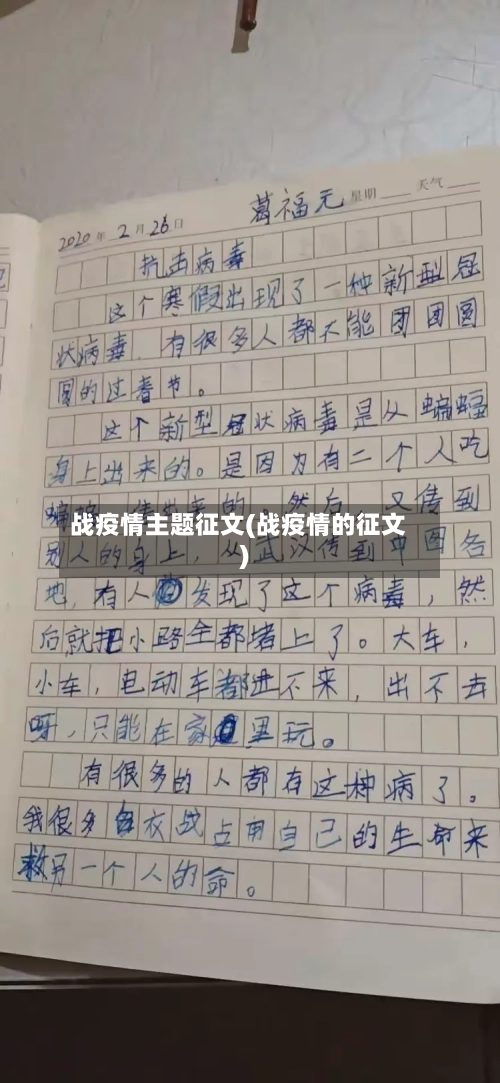 2020年 2月 26日 葛福元 星期 天气
抗击病毒
这个寒假出现了一种新型冠
状病毒.有很多人都不能团团圆
圆的过春节。
这个新型冠状病毒是从蝙蝠
身上出来的。是因为有二个人吃
的 然后,又传到
战疫情主题征文(战疫情的征文
)
别人的身上,从武汉传到中国各
地,有人发现了这个病毒,然
后就把小路全都堵上了。大车,
小车,电动车都进不来,出不去
呀,只能在家里玩。
有很多的人都有这种病了。
我很多衣战占用自己的生命来
救另一个人的命。